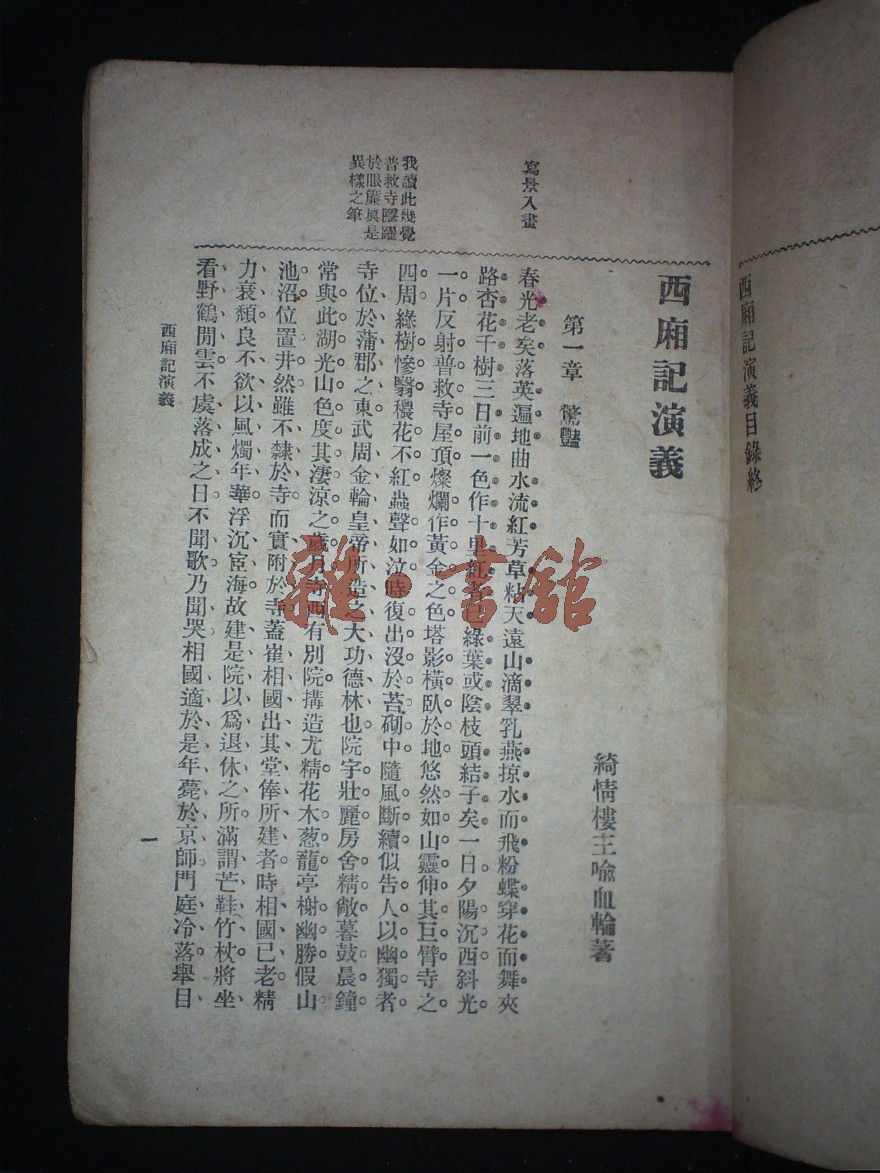 西廂記演義目錄終
西廂記演義
綺情樓主喻血輪著
第一章　驚豔
寫景入畫
春光老矣落英遍地曲水流紅芳草粘天遠山滴翠乳燕掠水而飛粉蝶穿花而舞夾
路杏花千樹三日前一色作十里紅綠葉或陰枝頭結子矣一日夕陽沉西斜光
一片反射普救寺屋頂燦爛作黃金之色塔影橫臥於地悠然如山靈伸其巨臂寺之
我讀此幾覺
普救寺隱躍
於眼簾眞是
異樣之筆
四周綠樹慘翳穠花不紅蟲聲如泣時復出沒於苔砌中隨風斷續似告人以幽獨者
寺位於蒲郡之東武周金輪皇帝所造之大功德林也院宇壯麗房舍精敞暮鼓晨鐘
常與此湖光山色度其淒涼之歲月寺西有別院搆造尤精花木葱蘢亭榭幽勝假山
池沼位置井然雖不隸於寺而實附於寺蓋崔相國出其堂俸所建者時相國已老精
力衰頹良不欲以風燭年華浮沉宦海故建是院以爲退休之所滿謂芒鞋竹杖將坐
看野鶴閒雲不虞落成之日不聞歌乃聞哭相國適於是年薨於京師門庭冷落舉目
西廂記演義
一
雜·書舘